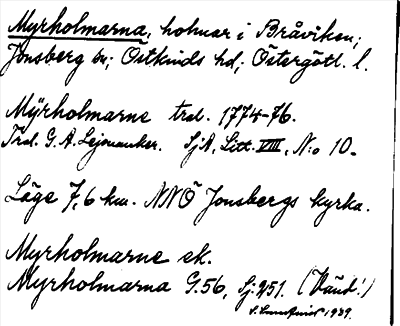 Myrholmarna, holmar i Bråviken;
Jonsberg sn; Östkinds hd; Östergötl. l.
Myrholmarne trol. 1774-76.
Trol. G. A. Lejonanker. SjA, Litt. VIII, N:o 10.
Läge 7,6 km. NNÖ Jonsbergs kyrka.
Myrholmarne ek.
Myrholmarna G.56, Sj: 251. (Vänd!)
1939.